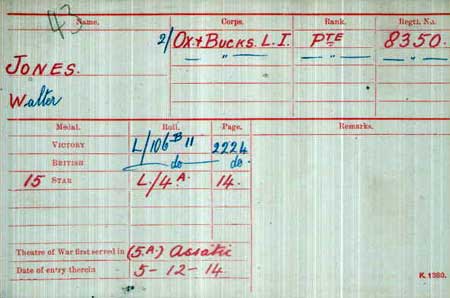 43
Name. Corps. Rank. Regtl. No.
2/ Ox. & Bucks. L. I. PTE 8350.
JONES. — " — — " — — " —
Walter
Medal. Roll. Page. Remarks.
VICTORY L/106 B 11 2224
BRITISH — do — do.
15 STAR L/4 A. 14.
Theatre of War first served in (5.A.) Assatic
Date of entry therein 5-12-14.
K. 1380.